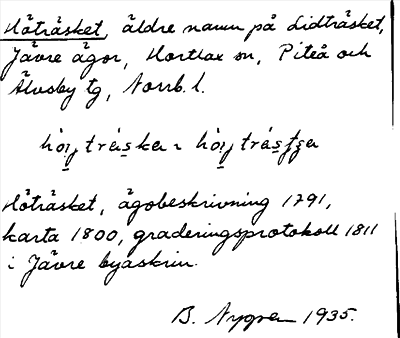 Höträsket, äldre namn på Lidträsket,
Jävre ägor, Hortlax sn, Piteå och
Älvsby tg, Norrb. l.
Höträsket, ägobeskrivning 1791,
karta 1800, graderingsprotokoll 1811
i Jävre byaskrin.
B. Nygren 1935.